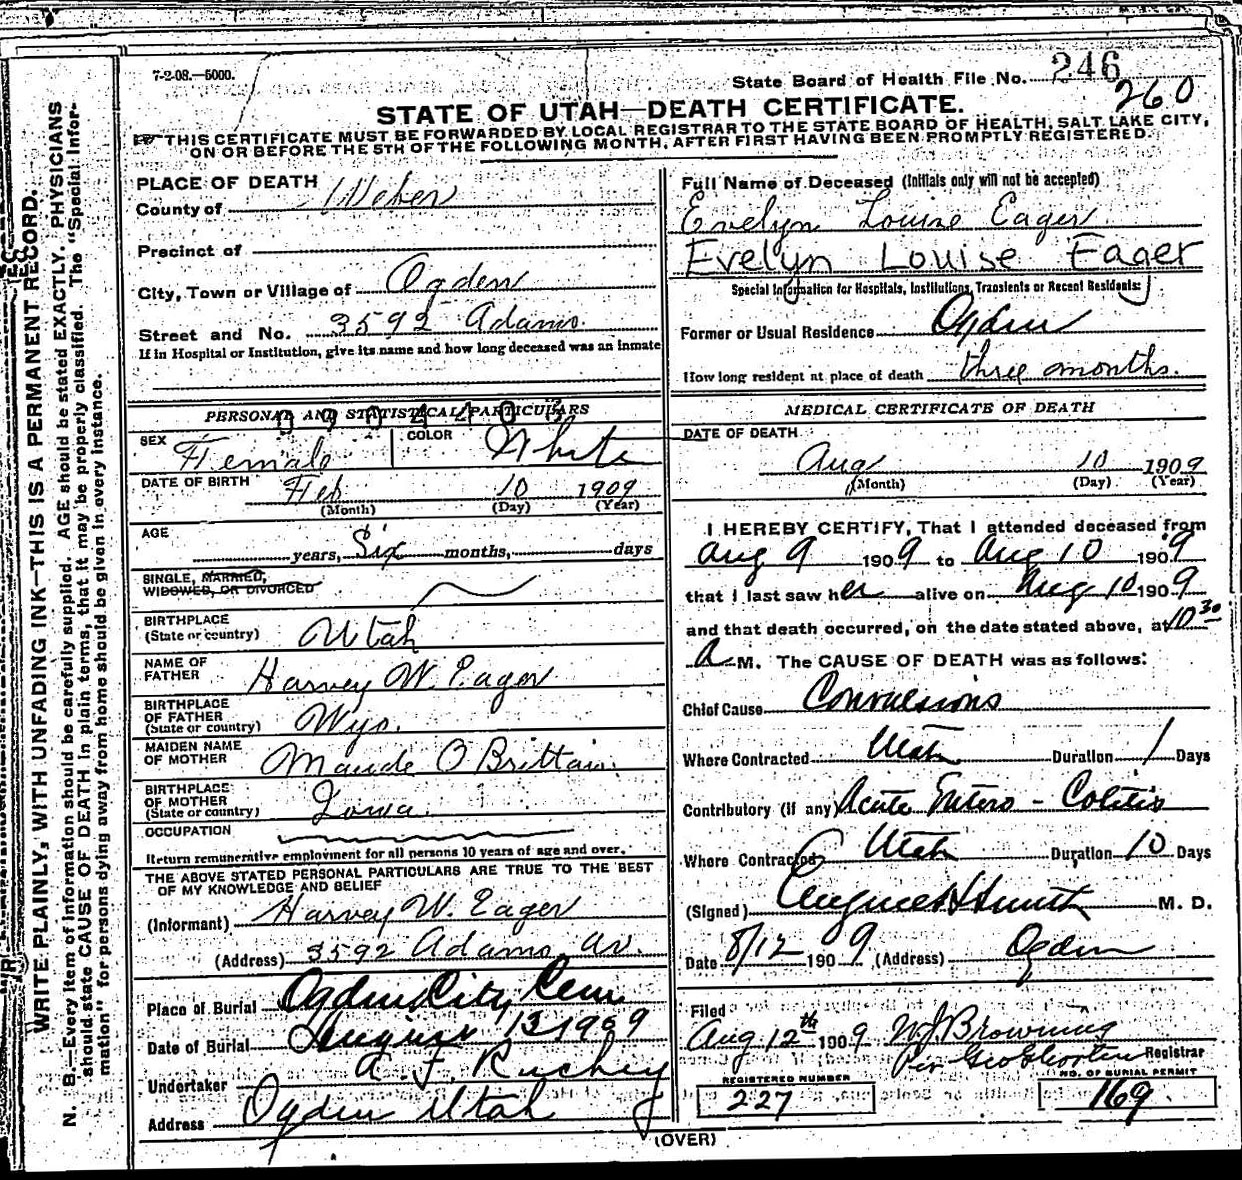 7-2-08.—5000.
State Board of Health File No. 246
260
STATE OF UTAH—DEATH CERTIFICATE.
THIS CERTIFICATE MUST BE FORWARDED BY LOCAL REGISTRAR TO THE STATE BOARD OF HEALTH, SALT LAKE CITY,
ON OR BEFORE THE 5TH OF THE FOLLOWING MONTH, AFTER FIRST HAVING BEEN PROMPTLY REGISTERED.
WRITE PLAINLY, WITH UNFADING INK—THIS IS A PERMANENT RECORD.
N. B.—Every item of information should be carefully supplied. AGE should be stated EXACTLY. PHYSICIANS
should state CAUSE OF DEATH in plain terms, that it may be properly classified. The "Special Infor-
mation" for persons dying away from home should be given in every instance.
PLACE OF DEATH
County of Weber
Precinct of
City, Town or Village of Ogden
Street and No. 3592 Adams.
If in Hospital or Institution, give its name and how long deceased was an inmate
PERSONAL AND STATISTICAL PARTICULARS
SEX Female COLOR White
DATE OF BIRTH Feb 10 1909
(Month) (Day) (Year)
AGE
years, Six months, days
SINGLE, MARRIED,
WIDOWED, OR DIVORCED
BIRTHPLACE
(State or country) Utah
NAME OF
FATHER Harvey W. Eager
BIRTHPLACE
OF FATHER
(State or country) Wyo.
MAIDEN NAME
OF MOTHER Maude O Brittain
BIRTHPLACE
OF MOTHER
(State or country) Iowa.
OCCUPATION
Return remunerative employment for all persons 10 years of age and over.
THE ABOVE STATED PERSONAL PARTICULARS ARE TRUE TO THE BEST
OF MY KNOWLEDGE AND BELIEF
(Informant) Harvey W. Eager
(Address) 3592 Adams av.
Place of Burial Ogden City Cem
Date of Burial August 13 1909
Undertaker
Address Ogden Utah
Full Name of Deceased (Initials only will not be accepted)
Evelyn Louise Eager
Evelyn Louise Eager
Special Information for Hospitals, Institutions, Transients or Recent Residents:
Former or Usual Residence Ogden
How long resident at place of death three months.
MEDICAL CERTIFICATE OF DEATH
DATE OF DEATH
Aug 10 1909
(Month) (Day) (Year)
I HEREBY CERTIFY, That I attended deceased from
Aug 9 1909 to Aug 10 1909
that I last saw her alive on Aug 10 1909
and that death occurred, on the date stated above, at 10 30
A M. The CAUSE OF DEATH was as follows:
Chief Cause Convulsions
Where Contracted Utah Duration 1 Days
Contributory (if any) Acute Entero - Colitis
Where Contracted Utah Duration 10 Days
(Signed) M. D.
Date 8/12 1909 (Address) Ogden
Filed
Aug 12th 1909 W J Browning
Per Registrar
REGISTERED NUMBER
227
NO. OF BURIAL PERMIT
169.
(OVER)